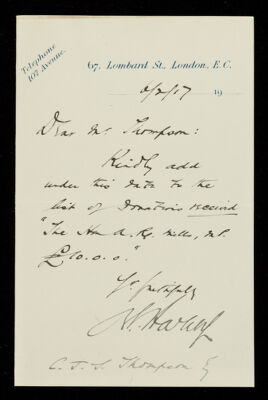 Telephone
107 Avenue.
67, Lombard St., London, E.C.
6/2/17 19
Dear Mr Thompson:
Kindly add
under this date to the
list of Donations received
"The Hon A. R. Mills, M.P.
£10.0.0."
Yrs faithfully
C. J. S. Thompson Esq